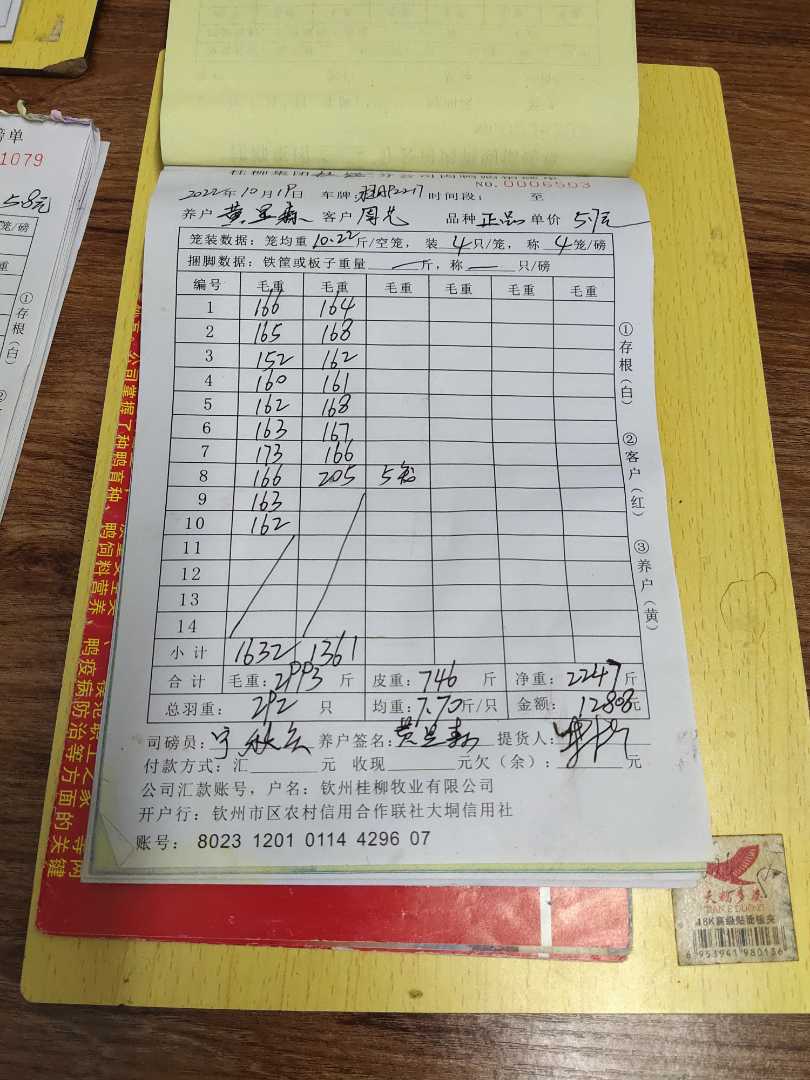 磅单
1079
5.8元
笼/磅
重
①存根(白)
NO.0006503
2022年10月19日 车牌: 时间段: 至
养户 黄呈森 客户 周总 品种 正品 单价 5.7元
笼装数据: 笼均重 10.22 斤/空笼, 装 4 只/笼, 称 4 笼/磅
捆脚数据: 铁筐或板子重量 — 斤, 称 — 只/磅
编号 毛重 毛重 毛重 毛重 毛重 毛重
1 166 164
2 165 168
3 152 162
4 160 161
5 162 168
6 163 167
7 173 166
8 166 205 5笼
9 163
10 162
11
12
13
14
小计 1632 1361
合计 毛重: 2993 斤 皮重: 746 斤 净重: 2247 斤
总羽重: 292 只 均重: 7.70 斤/只 金额: 12808 元
①存根(白)
②客户(红)
③养户(黄)
司磅员: 养户签名: 黄呈森 提货人:
付款方式: 汇 元 收现 元欠(余): 元
公司汇款账号, 户名: 钦州桂柳牧业有限公司
开户行: 钦州市区农村信用合作联社大垌信用社
账号: 8023 1201 0114 4296 07
公司掌握了种鸭育种、鸭饲料营养、鸭疫病防治等方面的关键
18K高级贴面板夹
6 953941 980136